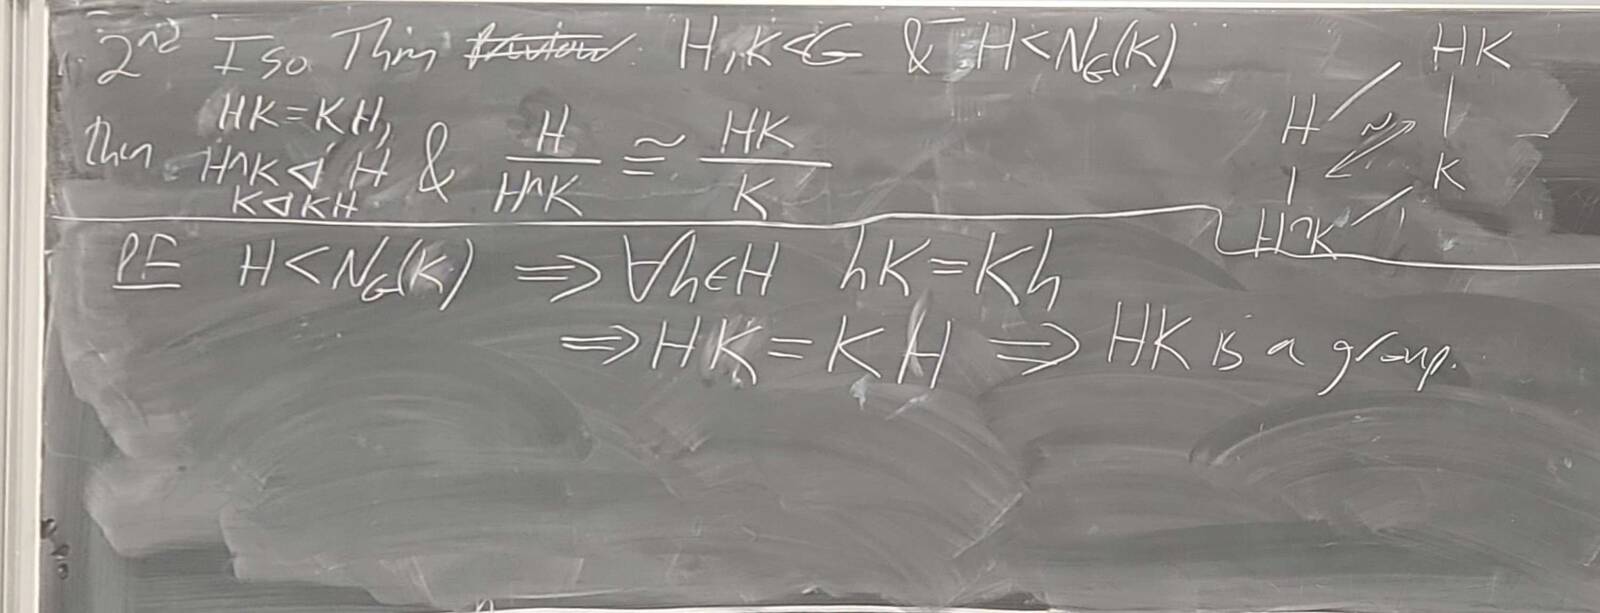 2nd Iso Thm H, K < G & H < N_G(K)
Then HK = KH, H∩K ◁ H, K ◁ KH & H/(H∩K) ≅ HK/K
HK
H ≅ K
H∩K
PF H < N_G(K) ⟹ ∀h∈H hK = Kh
⟹ HK = KH ⟹ HK is a group.